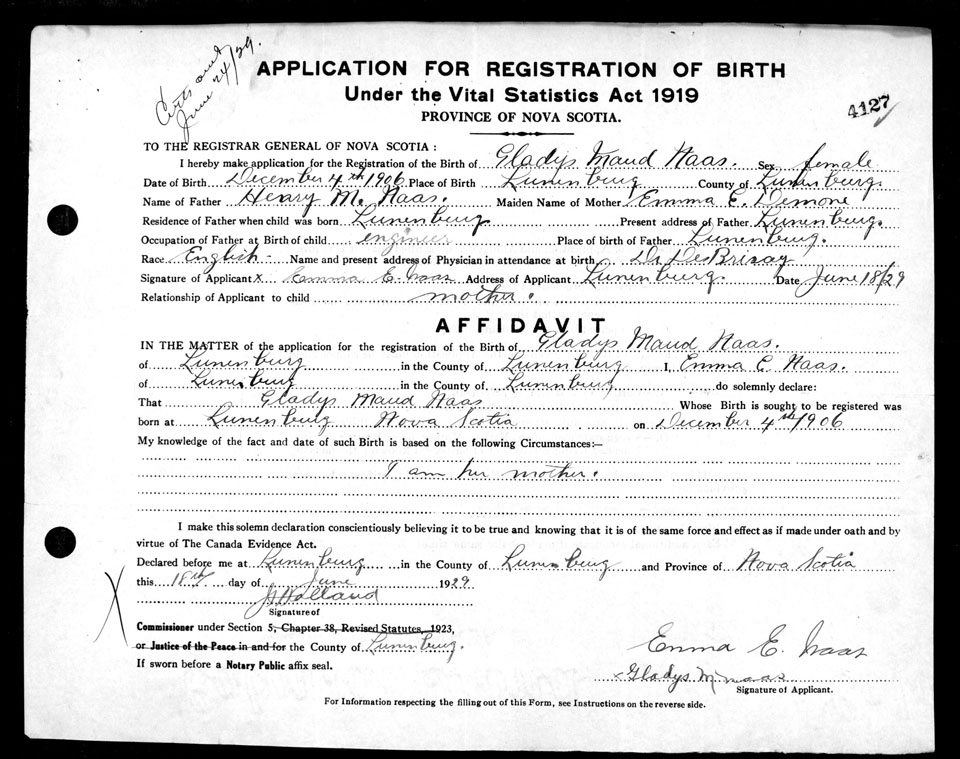 Certs out
June 24/29.
APPLICATION FOR REGISTRATION OF BIRTH
Under the Vital Statistics Act 1919
4127
PROVINCE OF NOVA SCOTIA.
TO THE REGISTRAR GENERAL OF NOVA SCOTIA :
I hereby make application for the Registration of the Birth of Gladys Maud Naas. Sex female
Date of Birth December 4th 1906 Place of Birth Lunenburg County of Lunenburg.
Name of Father Henry M. Naas. Maiden Name of Mother Emma E. Demone
Residence of Father when child was born Lunenburg Present address of Father Lunenburg.
Occupation of Father at Birth of child engineer Place of birth of Father Lunenburg.
Race English - Name and present address of Physician in attendance at birth Dr. DesBrisay
Signature of Applicant x Emma E. Naas Address of Applicant Lunenburg. Date June 18/29
Relationship of Applicant to child mother.
AFFIDAVIT
IN THE MATTER of the application for the registration of the Birth of Gladys Maud Naas.
of Lunenburg in the County of Lunenburg I, Emma E Naas.
of Lunenburg in the County of Lunenburg do solemnly declare:
That Gladys Maud Naas Whose Birth is sought to be registered was
born at Lunenburg Nova Scotia on December 4th 1906
My knowledge of the fact and date of such Birth is based on the following Circumstances:—
I am her mother.
I make this solemn declaration conscientiously believing it to be true and knowing that it is of the same force and effect as if made under oath and by
virtue of The Canada Evidence Act.
Declared before me at Lunenburg in the County of Lunenburg and Province of Nova Scotia
this 18th day of June 1929
X
Holland
Signature of
Commissioner under Section 5, Chapter 38, Revised Statutes, 1923,
or Justice of the Peace in and for the County of Lunenburg.
If sworn before a Notary Public affix seal.
Emma E. Naas
x Gladys M Naas
Signature of Applicant.
For Information respecting the filling out of this Form, see Instructions on the reverse side.